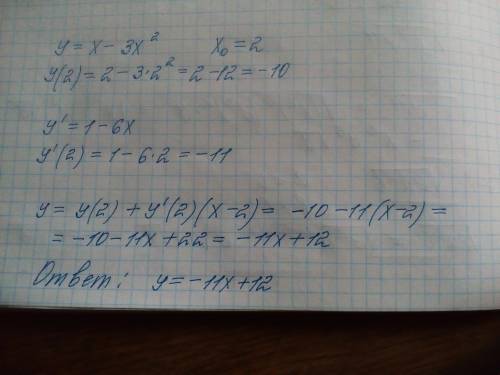 y = x - 3x² x₀ = 2
y(2) = 2 - 3·2² = 2 - 12 = -10
y' = 1 - 6x
y'(2) = 1 - 6·2 = -11
y = y(2) + y'(2)(x-2) = -10 - 11(x-2) =
= -10 - 11x + 22 = -11x + 12
Ответ: y = -11x + 12